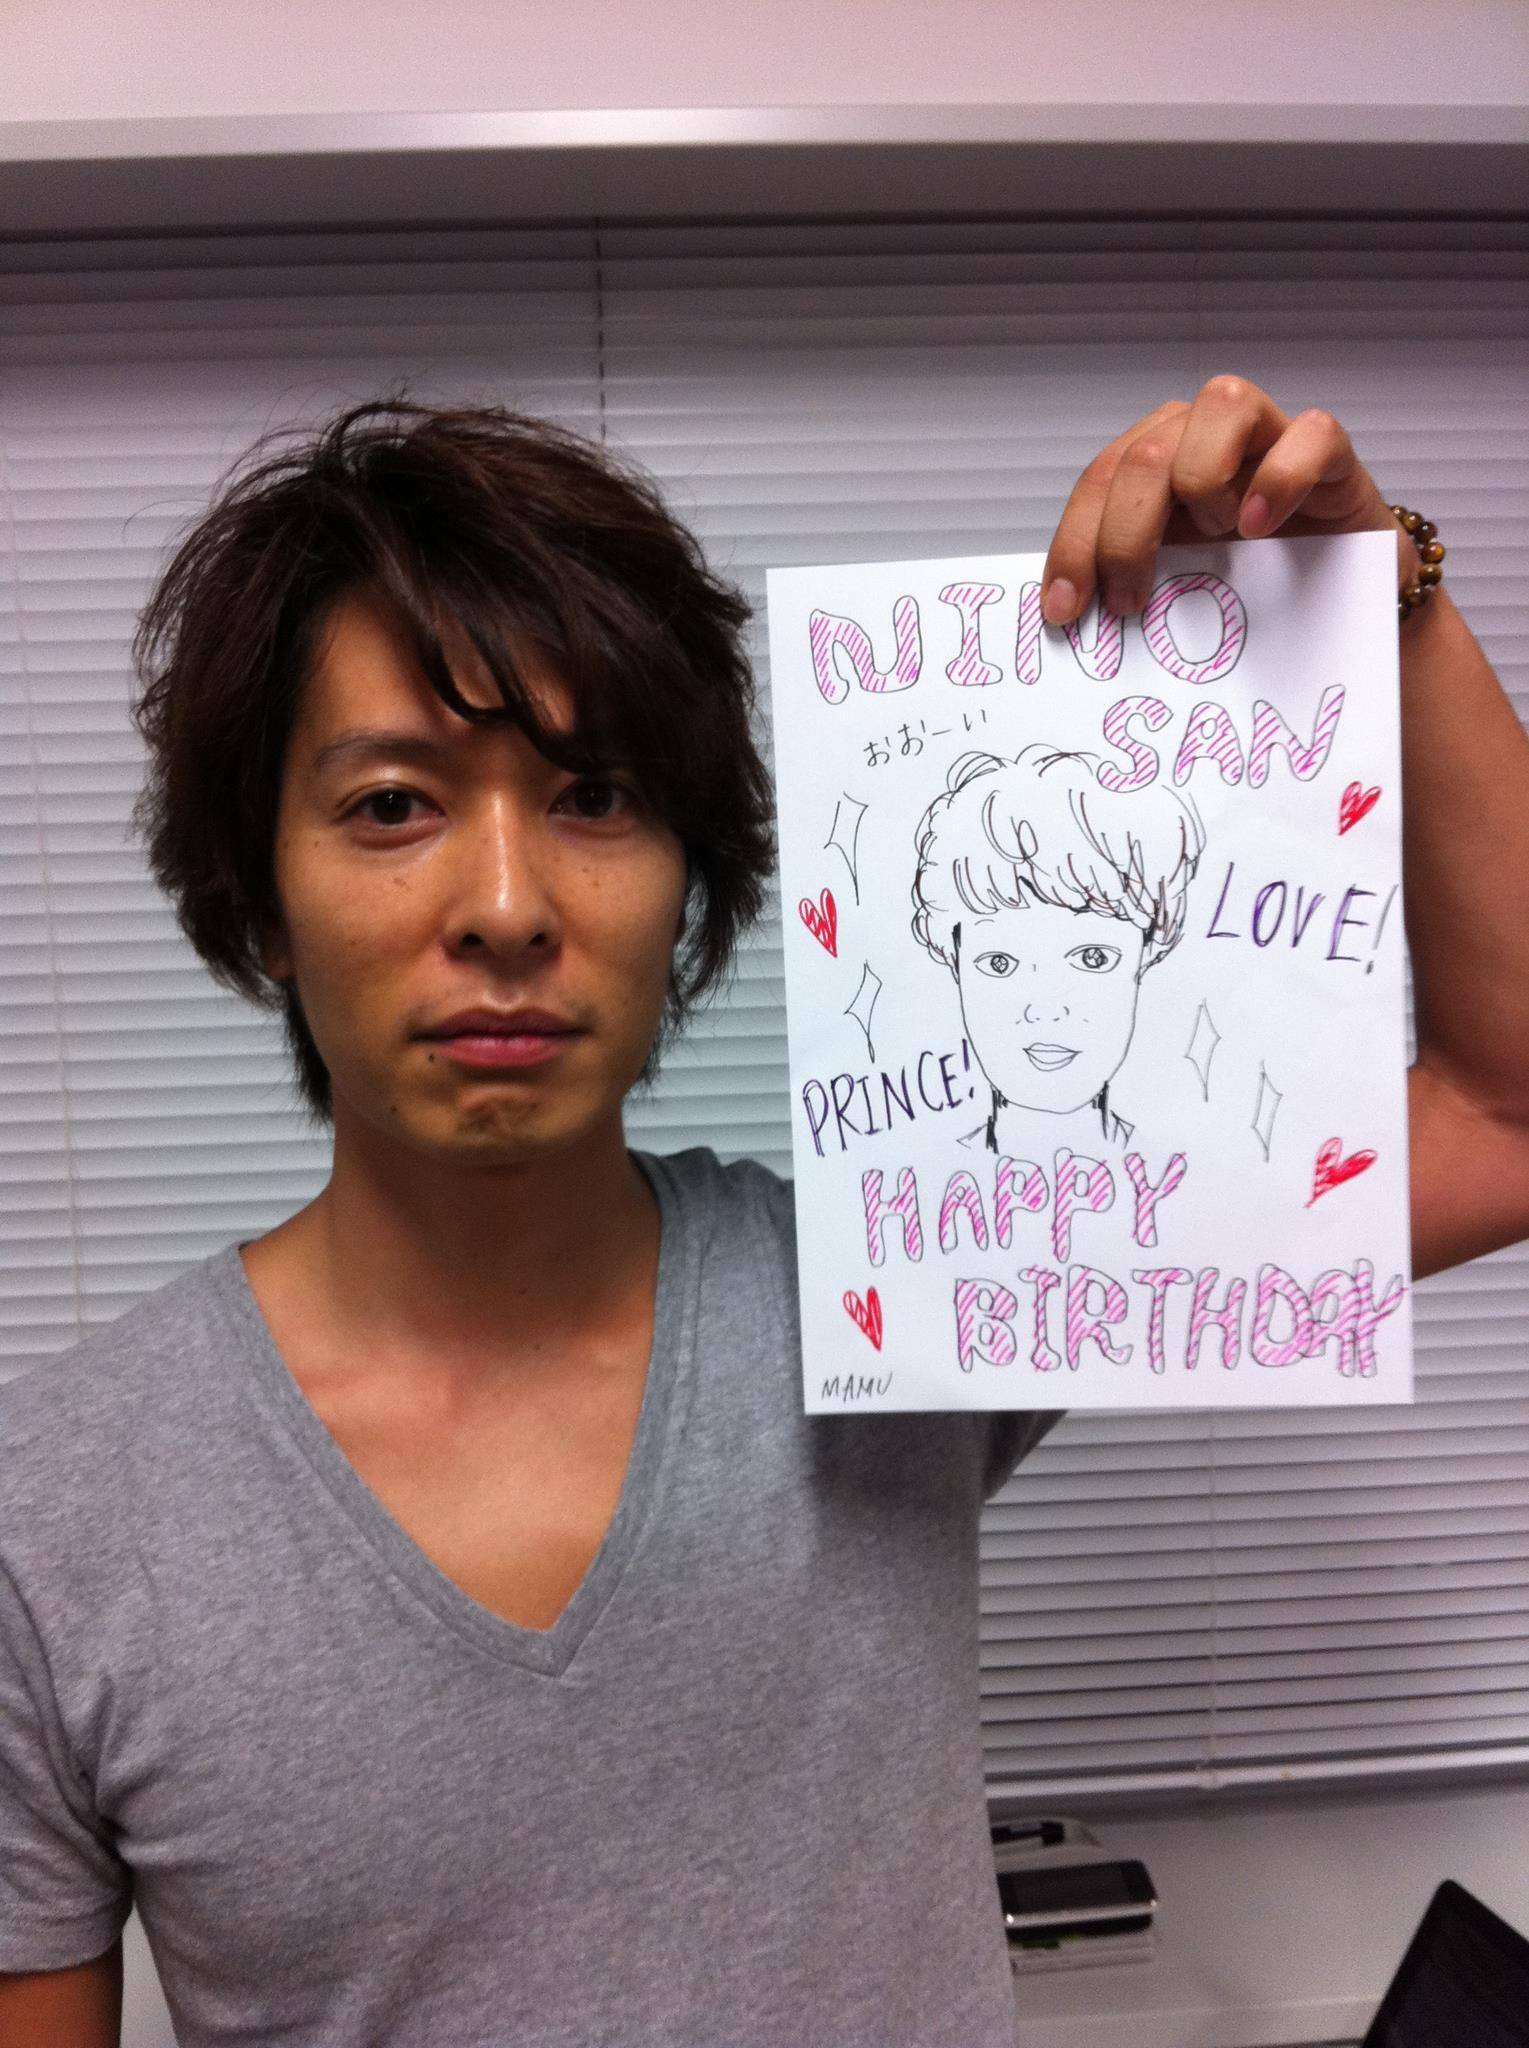 NINO
SAN
おおーい
LOVE!
PRINCE!
HAPPY
BIRTHDAY
MAMU